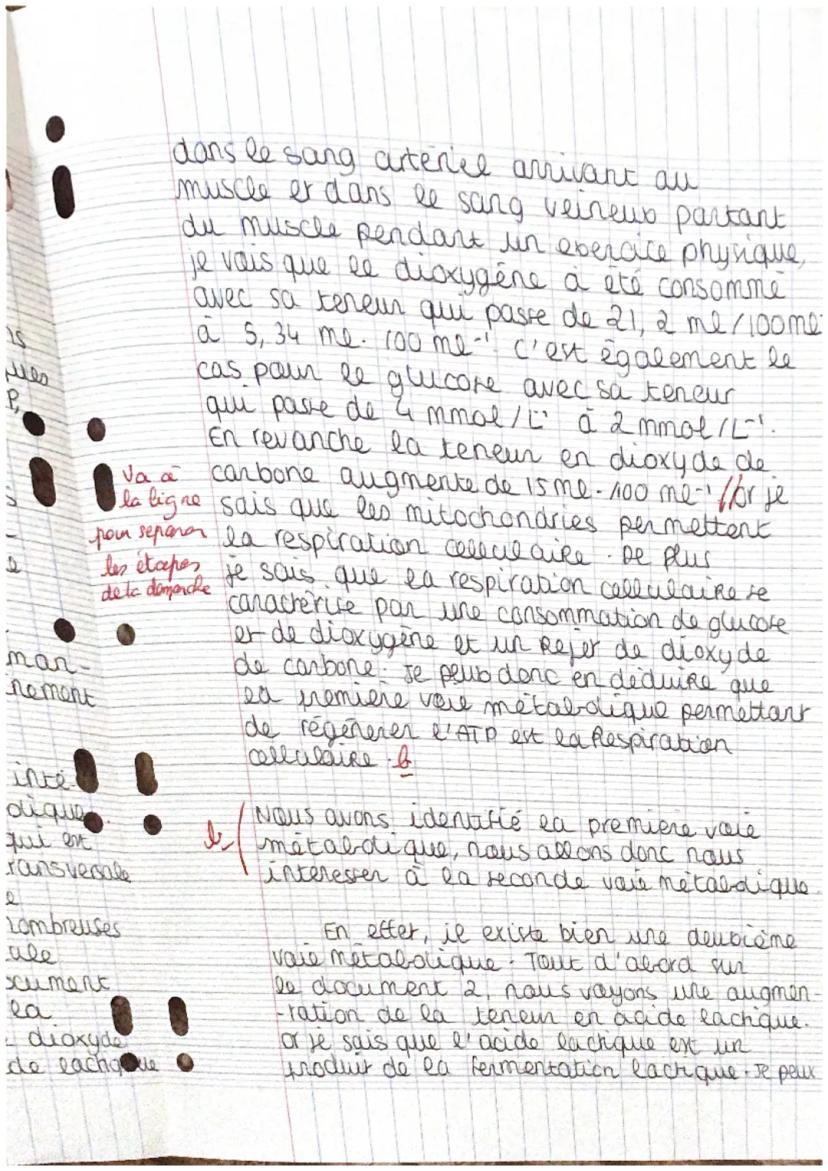 dans le sang artériel arrivant au
muscle et dans le sang veineux partant
du muscle pendant un exercice physique,
je vois que le dioxygène à été consommé
avec sa teneur qui passe de 21,2 ml/100ml
à 5,34 ml. 100 ml⁻¹. c'est également le
cas pour le glucose avec sa teneur
qui passe de 4 mmol/L⁻¹ à 2 mmol/L⁻¹.
En revanche la teneur en dioxyde de
carbone augmente de 15 ml. 100 ml⁻¹ // or je
sais que les mitochondries permettent
la respiration cellulaire. De plus
je sais que la respiration cellulaire se
caractérise par une consommation de glucose
et de dioxygène et un Rejet de dioxyde
de carbone. Je peux donc en déduire que
la première voie métabolique permettant
de régénérer l'ATP est la Respiration
cellulaire. b
Va à
la ligne
pour séparer
les étapes
de la démarche
b/ ( Nous avons identifié la première voie
métabolique, nous allons donc nous
interesser à la seconde voie métabolique.
En effet, il existe bien une deuxième
voie métabolique. Tout d'abord sur
le document 2, nous voyons une augmen-
-tation de la teneur en acide lactique.
or je sais que l'acide lactique est un
produit de la fermentation lactique. Je peux
ns
ques
P,
s
-
e
man-
nement
inté
dique.
qui est
ransversale
e
nombreuses
ale
ocument
la
dioxyde
de lactique